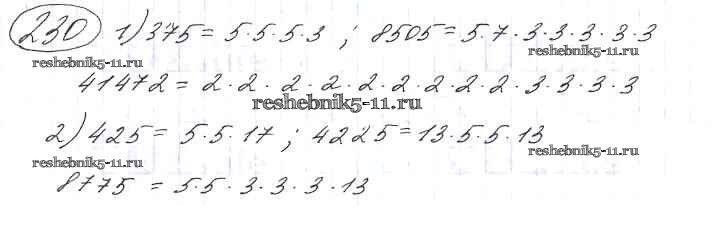 230 1) 375 = 5·5·5·3 ; 8505 = 5·7·3·3·3·3·3
reshebnik5-11.ru reshebnik5-11.ru
41472 = 2·2·2·2·2·2·2·2·2·3·3·3·3
reshebnik5-11.ru
2) 425 = 5·5·17 ; 4225 = 13·5·5·13
reshebnik5-11.ru reshebnik5-11.ru
8775 = 5·5·3·3·3·13